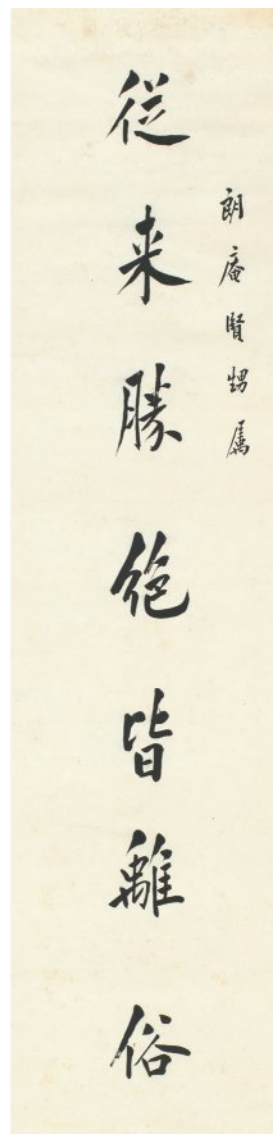 朗庵賢甥属
従来勝絶皆離俗